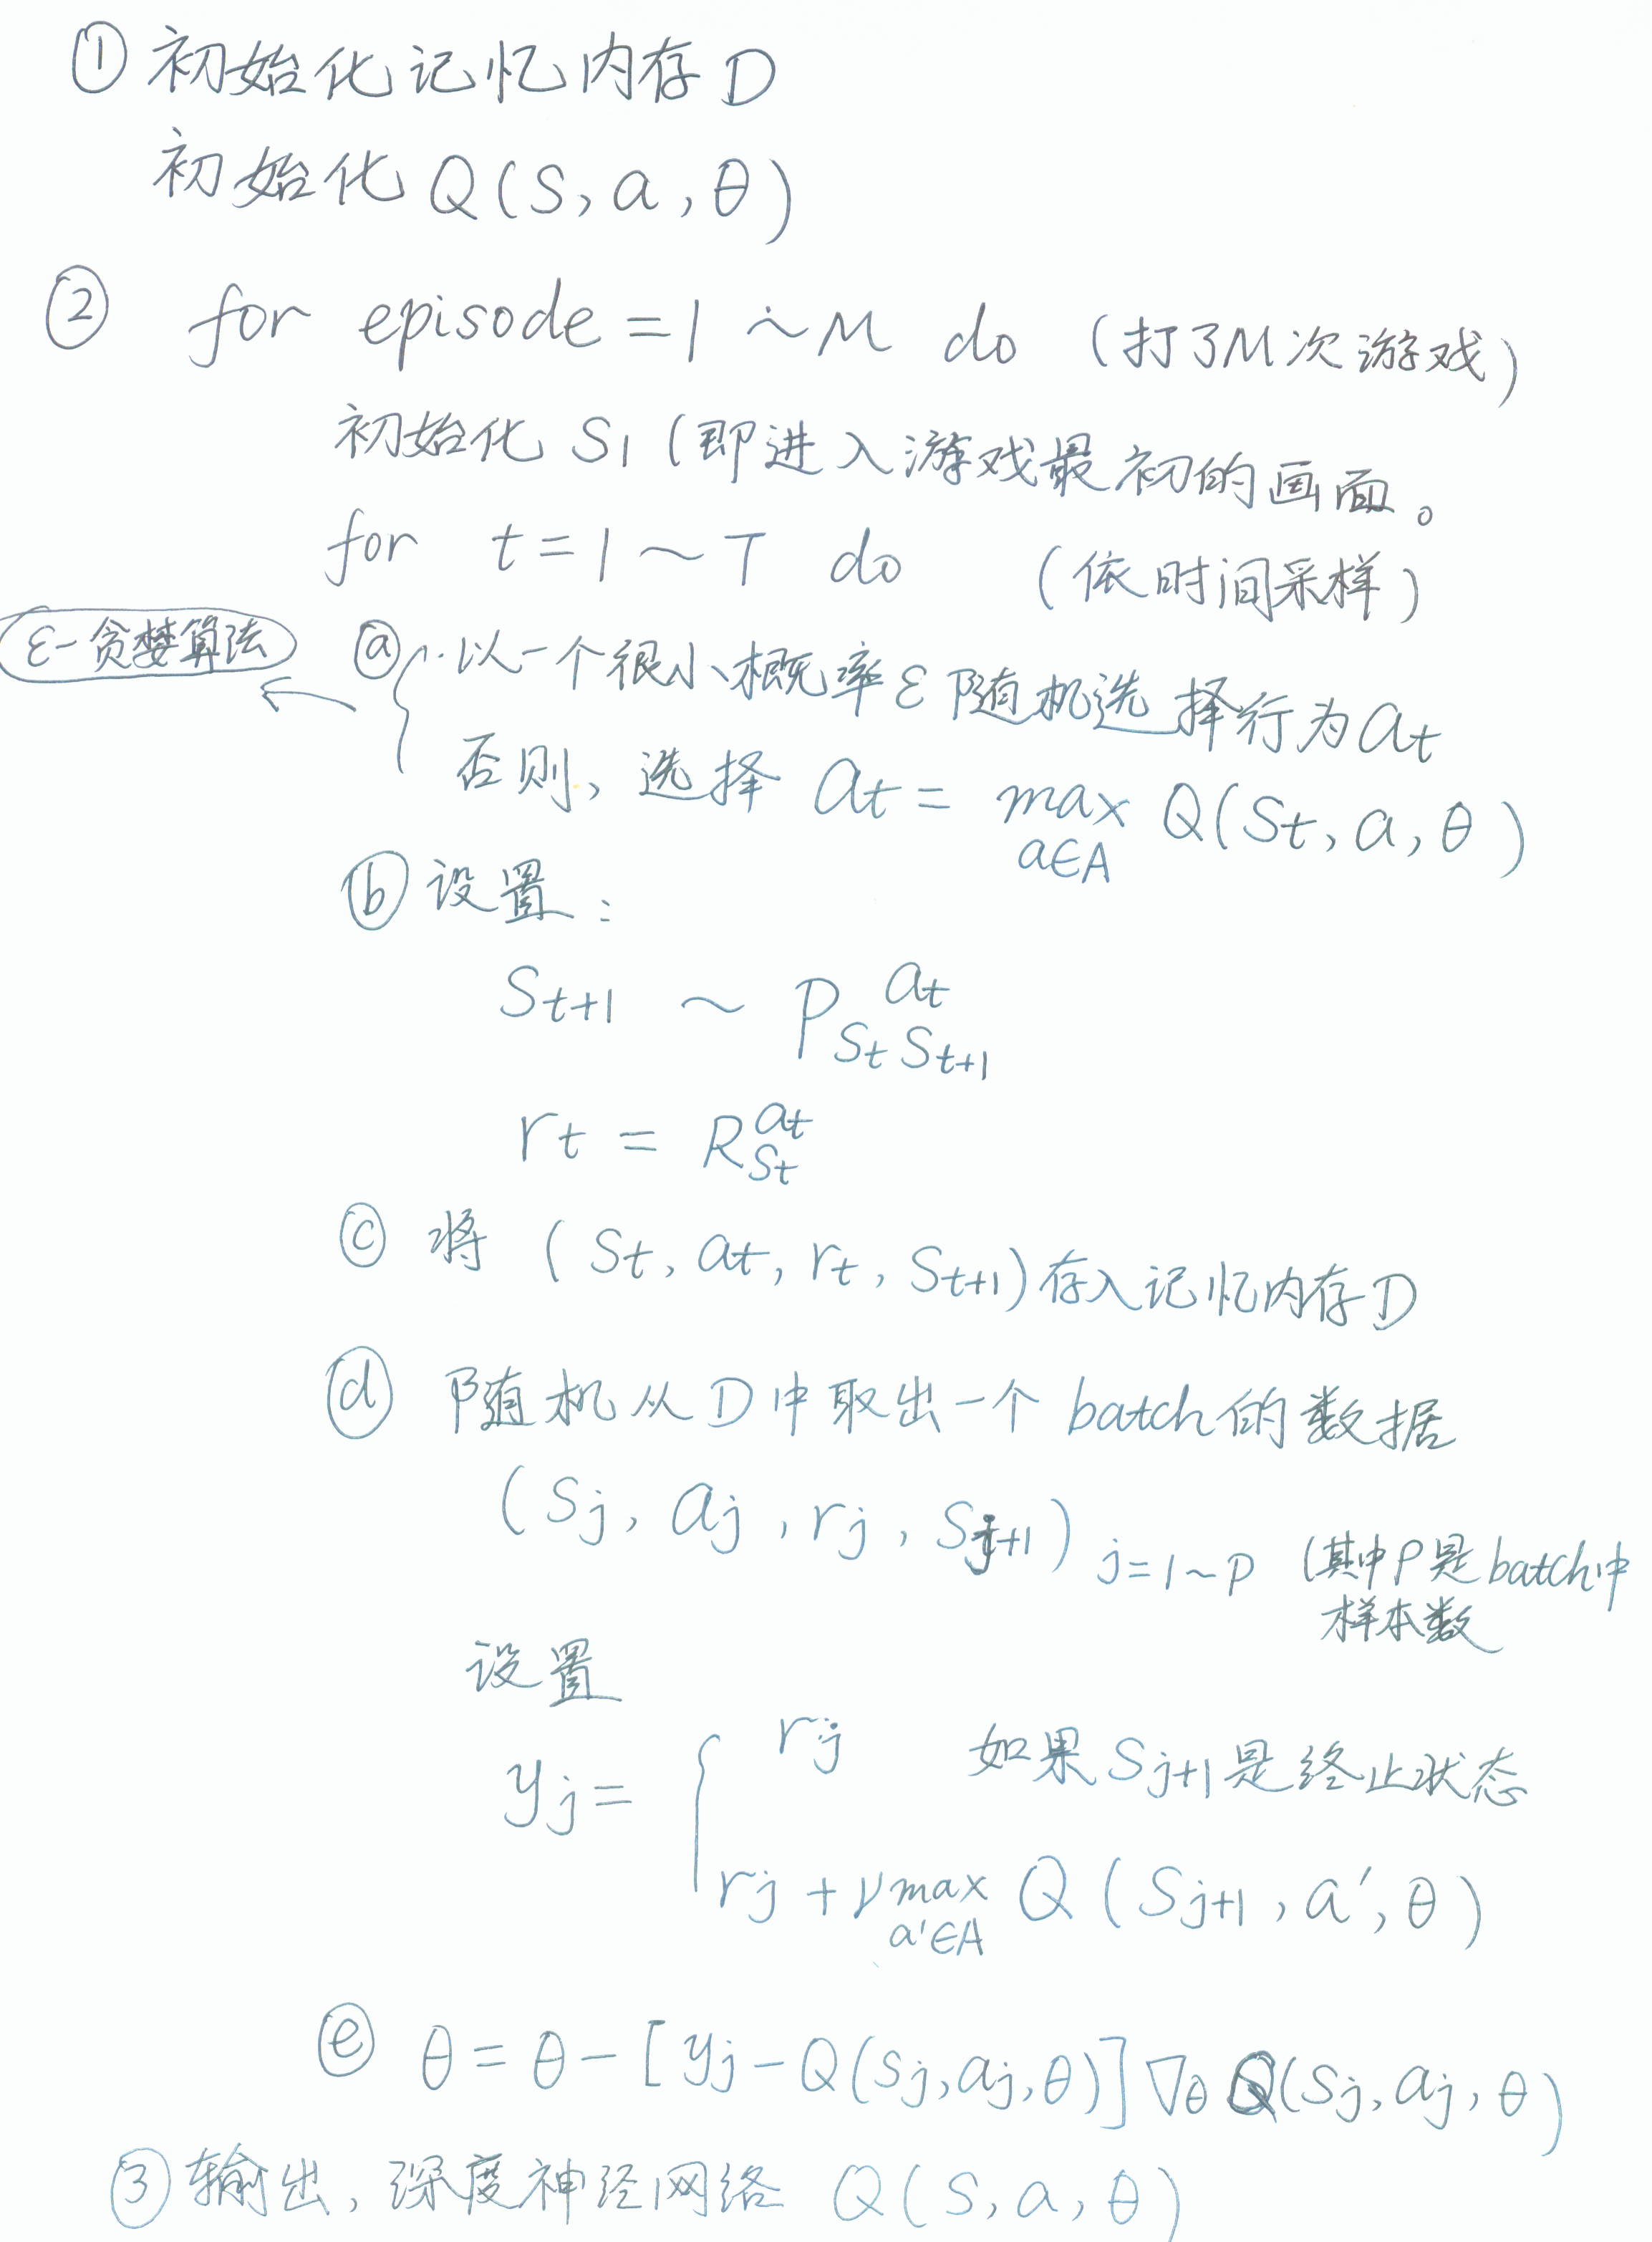 ① 初始化记忆内存D
初始化 Q(S, a, θ)
② for episode = 1 ~ M do (打了M次游戏)
初始化 S1 (即进入游戏最初的画面。
for t = 1 ~ T do (依时间采样)
ε-贪婪算法
ⓐ 以一个很小概率ε随机选择行为at
否则, 选择 at = max Q(St, a, θ)
a∈A
ⓑ 设置:
St+1 ~ P^at_St St+1
rt = R^at_St
ⓒ 将 (St, at, rt, St+1) 存入记忆内存D
ⓓ 随机从D中取出一个 batch的数据
(Sj, aj, rj, Sj+1) j=1~P (其中P是batch中
样本数
设置
yj = { rj 如果Sj+1是终止状态
rj + γ max Q (Sj+1, a', θ)
a'∈A
ⓔ θ = θ - [yj - Q(Sj, aj, θ)] ∇θ Q(Sj, aj, θ)
③ 输出, 深度神经网络 Q(S, a, θ)